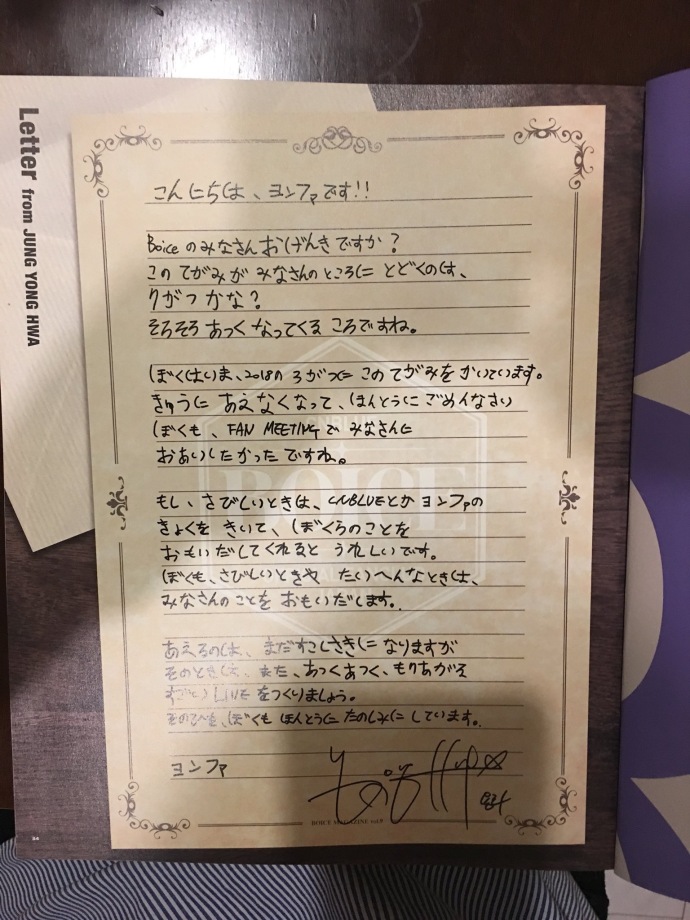 Letter from JUNG YONG HWA
こんにちは、ヨンファです!!
Boiceのみなさんおげんきですか?
このてがみが みなさんのところに とどくのは、
りがつかな?
そろそろ あつく なってくる ころですね。
ぼくはいま、2018の 3がつに このてがみを かいています。
きゅうに あえなくなって、ほんとうに ごめんなさい
ぼくも、FAN MEETINGで みなさんに
おあいしたかった ですね。
もし、さびしいときは、CNBLUEとか ヨンファの
きょくを きいて、ぼくらのことを
おもいだしてくれると うれしいです。
ぼくも、さびしいときや たいへんなときは、
みなさんのことを おもいだします。
あえるのは、まだすこしさきに なりますが
そのときは、また、あつくあつく、もりあがる
すごい LIVEをつくりましょう。
そのひを、ぼくも ほんとうに たのしみに しています。
ヨンファ
BOICE
BOICE MAGAZINE vol.9
34